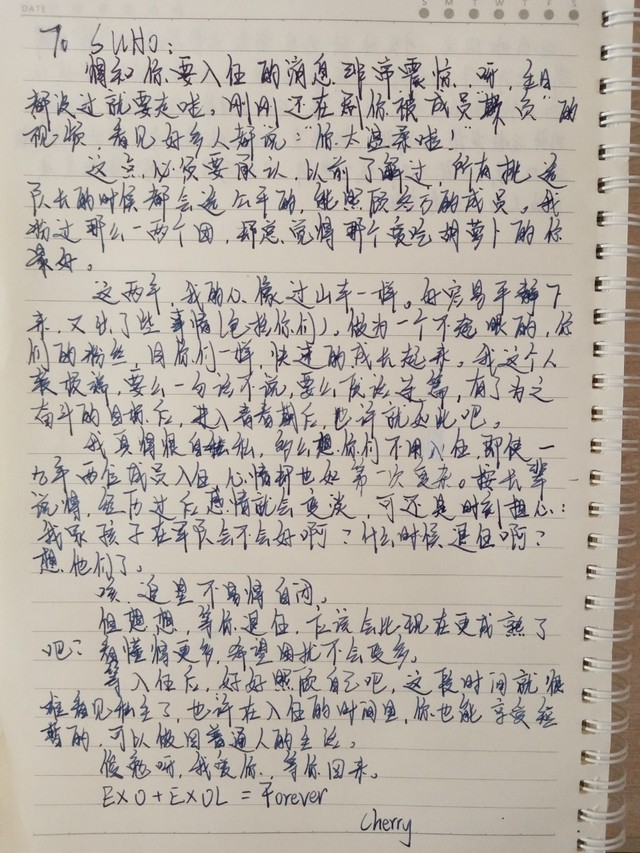 DATE
S M T W T F S
To SUHO:
得知你要入伍的消息非常震惊呀,生日
都没过就要走啦。刚刚还在刷你被成员“欺负”的
视频,看见好多人都说:“你太温柔啦!”
这点,必须要承认,以前了解过,所有挑选
队长的时候都会选公平的,能照顾各方的成员。我
粉过那么一两个团,都总觉得那个爱吃胡萝卜的你
最好。
这两年,我的心像过山车一样。好容易平静下
来,又出了些事情(包括你们),做为一个不起眼的,你
们的粉丝,同你们一样,快速的成长起来。我这个人
很极端,要么一句话不说,要么废话连篇,有了为之
奋斗的目标后,进入青春期后,也许就如此吧。
我真得很自私,多么想你们不用入伍,即使一
九年两位成员入伍,心情却也如第一次复杂。按长辈
说得,经历过后感情就会变淡,可还是时刻担心:
我家孩子在军队会不会好啊?什么时候退伍啊?
想他们了。
咳,追星不易得自闭。
但想想,等你退伍,应该会比现在更成熟了
吧?都懂得更多,希望困扰不会变多。
等入伍后,好好照顾自己吧,这段时间就很
难看见私生了,也许在入伍的时间里,你也能享受短
暂的,可以做回普通人的生活。
俊勉呀,我爱你,等你回来。
EXO+EXOL=Forever
Cherry